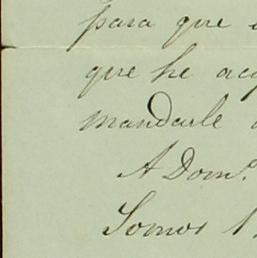 para que
que he
mandarle
A Domo.
Somos